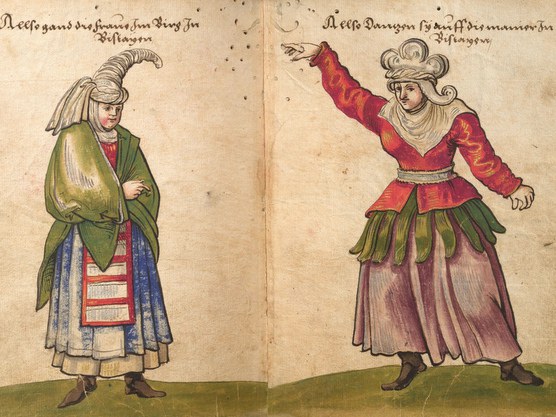 Allso gand die fraue Im Birg In
Bisiayen
Allso Danzen sy auff die manier In
Bisiayen